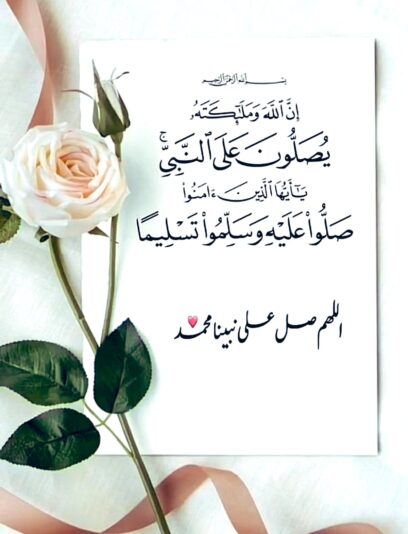 بسم الله الرحمن الرحيم
إِنَّ ٱللَّهَ وَمَلَـٰٓئِكَتَهُۥ
يُصَلُّونَ عَلَى ٱلنَّبِىِّ ۚ
يَـٰٓأَيُّهَا ٱلَّذِينَ ءَامَنُوا۟
صَلُّوا۟ عَلَيْهِ وَسَلِّمُوا۟ تَسْلِيمًا
اللهم صل على نبينا محمد